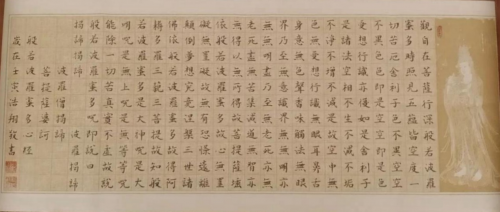 觀自在菩薩行深般若波羅
蜜多時照見五蘊皆空度一
切苦厄舍利子色不異空空
不異色色即是空空即是色
受想行識亦復如是舍利子
是諸法空相不生不滅不垢
不淨不增不減是故空中無
色無受想行識無眼耳鼻舌
身意無色聲香味觸法無眼
界乃至無意識界無無明亦
無無明盡乃至無老死亦無
老死盡無苦集滅道無智亦
無得以無所得故菩提薩埵
依般若波羅蜜多故心無罣
礙無罣礙故無有恐怖遠離
顛倒夢想究竟涅槃三世諸
佛依般若波羅蜜多故得阿
耨多羅三藐三菩提故知般
若波羅蜜多是大神咒是大
明咒是無上咒是無等等咒
能除一切苦真實不虛故說
般若波羅蜜多咒即說咒曰
揭諦揭諦 波羅揭諦
波羅僧揭諦
菩提薩婆訶
般若波羅蜜多心經
歲在壬寅浩翔敬書